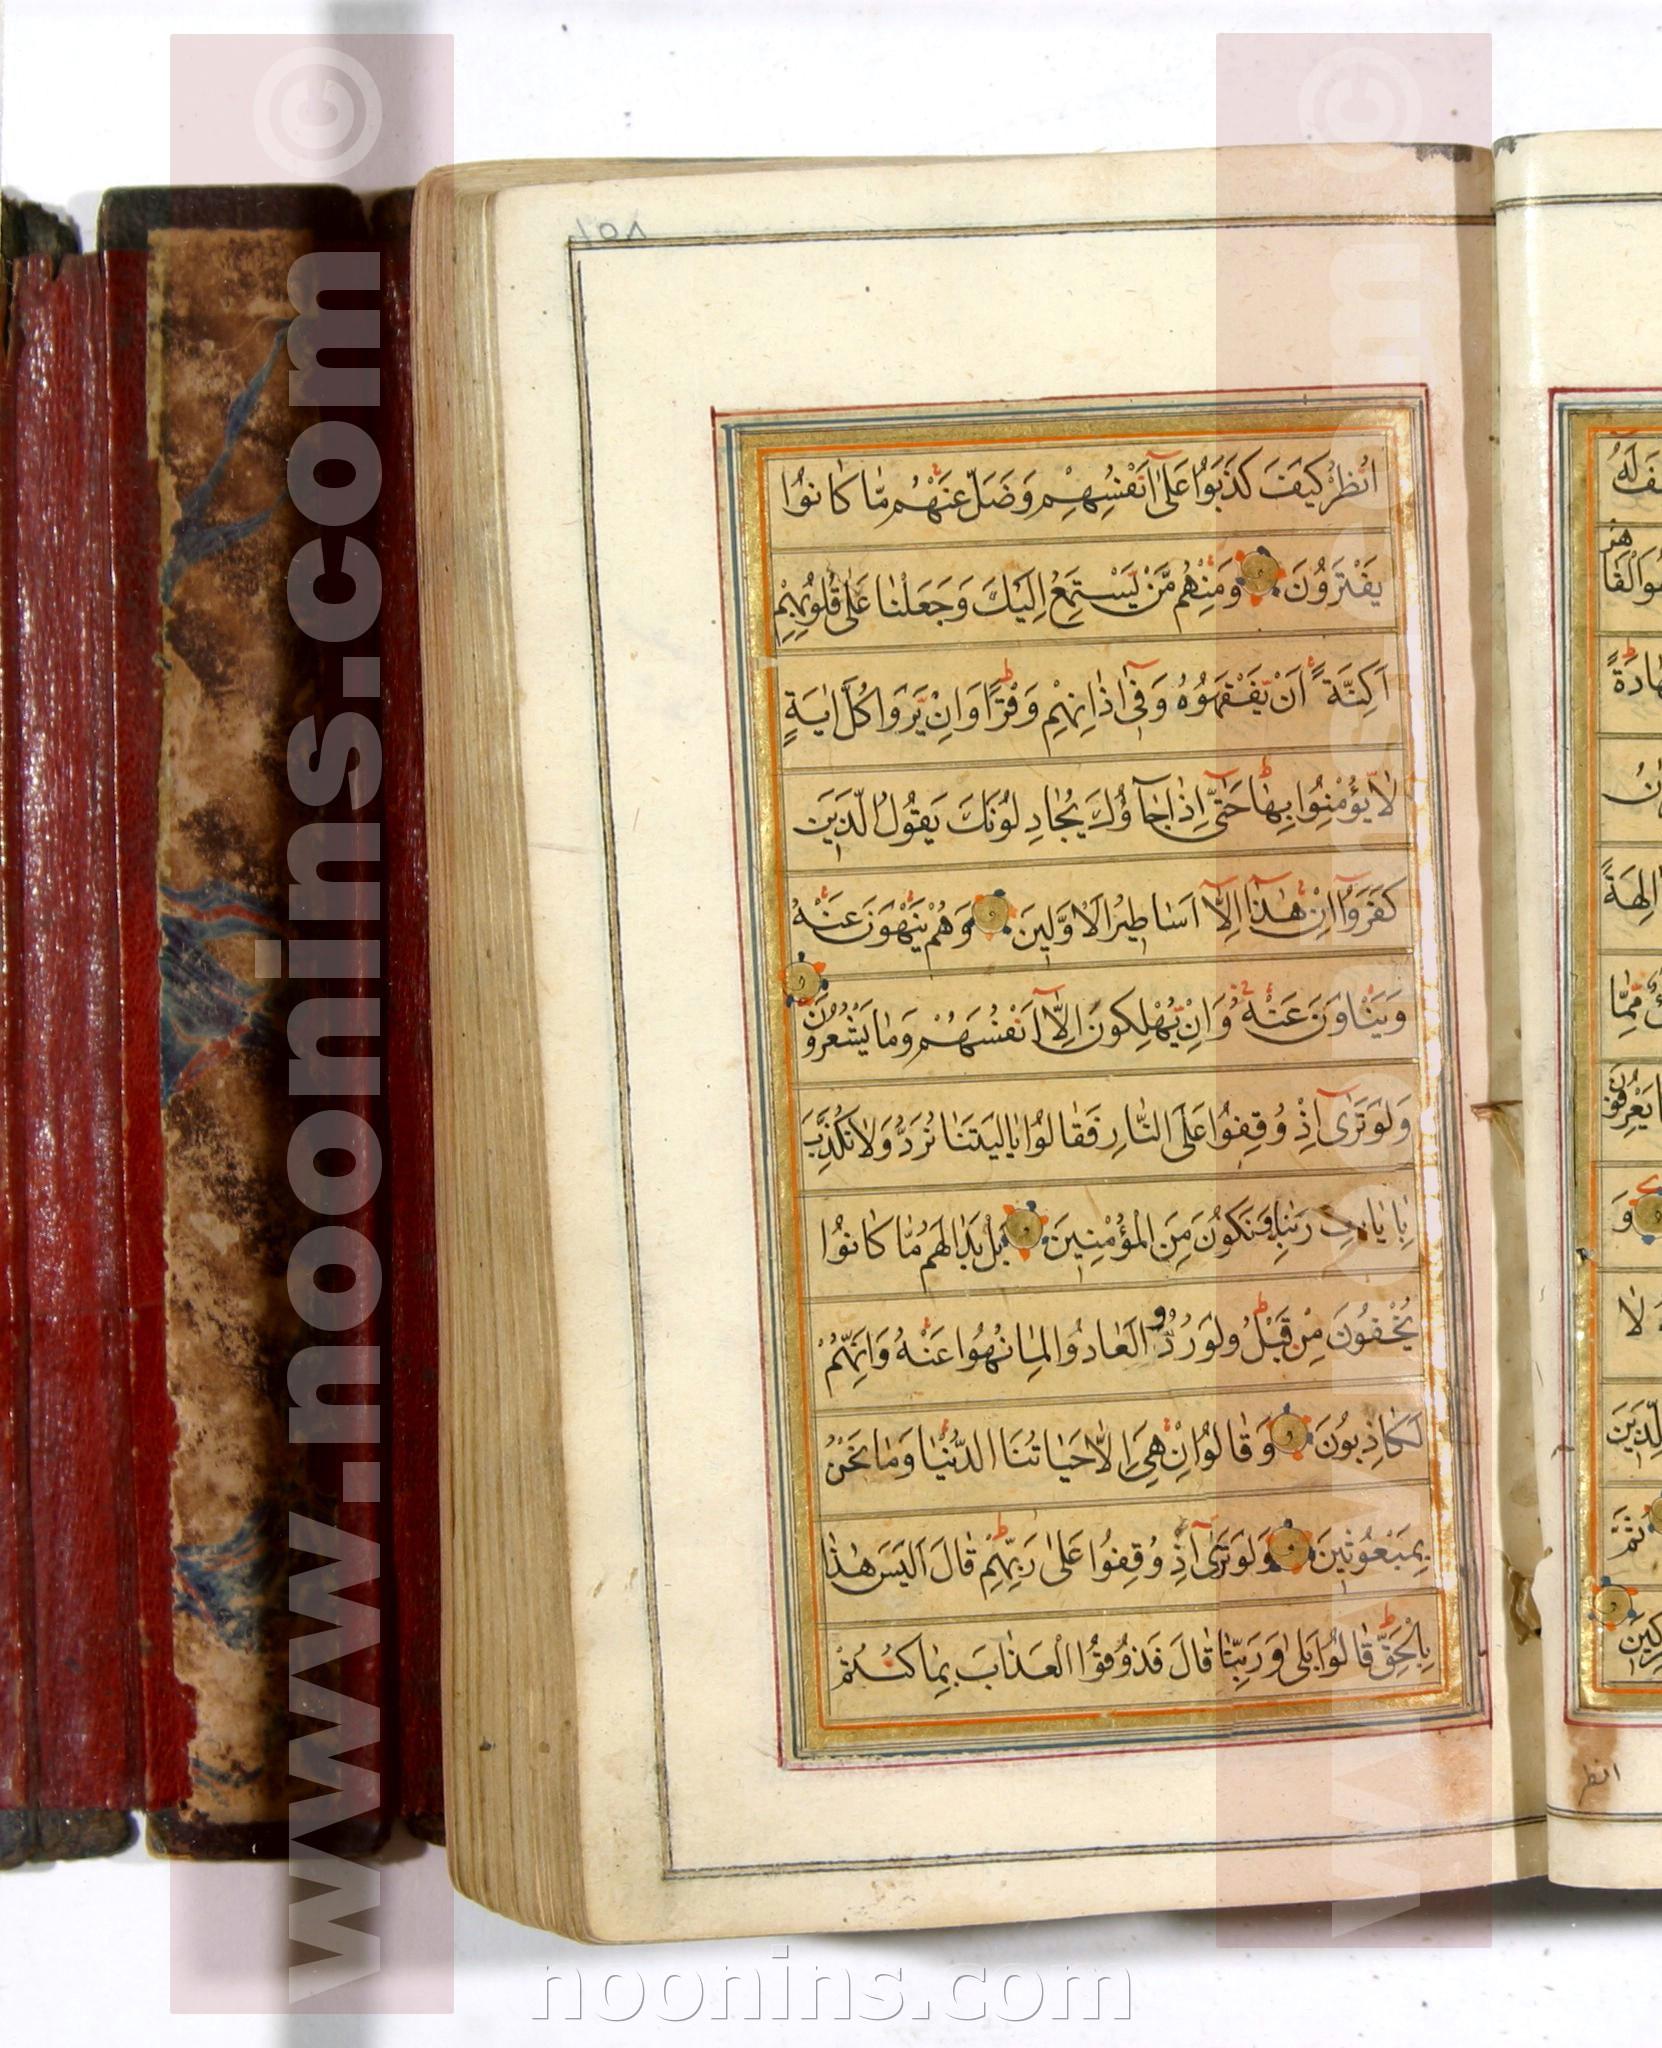 ١٥٨
اُنْظُرْ كَيْفَ كَذَبُوا عَلٰى اَنْفُسِهِمْ وَضَلَّ عَنْهُمْ مَّا كَانُوا
يَفْتَرُونَ وَمِنْهُمْ مَّنْ يَّسْتَمِعُ اِلَيْكَ وَجَعَلْنَا عَلٰى قُلُوبِهِمْ
اَكِنَّةً اَنْ يَّفْقَهُوهُ وَفِى اٰذَانِهِمْ وَقْرًا وَاِنْ يَّرَوْا كُلَّ اٰيَةٍ
لَّا يُؤْمِنُوا بِهَا حَتّٰى اِذَا جَاؤُكَ يُجَادِلُونَكَ يَقُولُ الَّذِينَ
كَفَرُوا اِنْ هٰذَا اِلَّا اَسَاطِيرُ الْاَوَّلِينَ وَهُمْ يَنْهَوْنَ عَنْهُ
وَيَنْاَوْنَ عَنْهُ وَاِنْ يُّهْلِكُونَ اِلَّا اَنْفُسَهُمْ وَمَا يَشْعُرُونَ
وَلَوْ تَرٰى اِذْ وُقِفُوا عَلَى النَّارِ فَقَالُوا يَالَيْتَنَا نُرَدُّ وَلَا نُكَذِّبَ
بِاٰيَاتِ رَبِّنَا وَنَكُونَ مِنَ الْمُؤْمِنِينَ بَلْ بَدَا لَهُمْ مَّا كَانُوا
يُخْفُونَ مِنْ قَبْلُ وَلَوْ رُدُّوا لَعَادُوا لِمَا نُهُوا عَنْهُ وَاِنَّهُمْ
لَكَاذِبُونَ وَقَالُوا اِنْ هِىَ اِلَّا حَيَاتُنَا الدُّنْيَا وَمَا نَحْنُ
بِمَبْعُوثِينَ وَلَوْ تَرٰى اِذْ وُقِفُوا عَلٰى رَبِّهِمْ قَالَ اَلَيْسَ هٰذَا
بِالْحَقِّ قَالُوا بَلٰى وَرَبِّنَا قَالَ فَذُوقُوا الْعَذَابَ بِمَا كُنْتُمْ
انظر
www.noonins.com ©
www.noonins.com ©
noonins.com